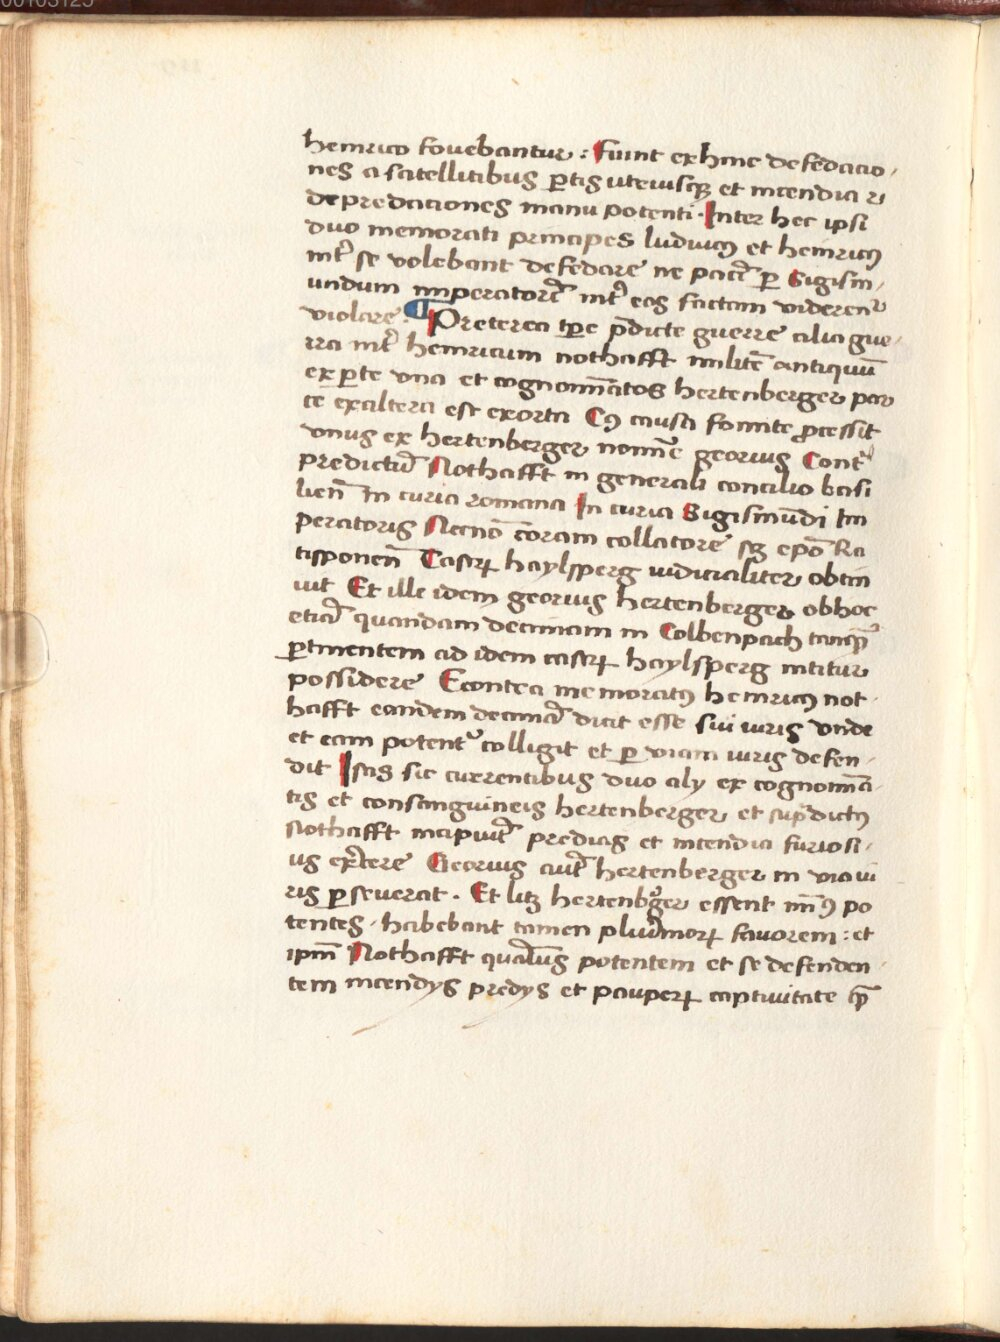 00103125
heinrico fouebantur : Fuint ex hinc defedacio-
nes a satellitibus ꝑtis utriusqꝫ et incendia ⁊
depredaciones manu potenti · Inter hec ipsi
duo memorati principes ludwicꝯ et heinricꝯ
int̄ se volebant defedare ne pacē ꝑ Sigism-
undum imperatorē int̄ eos factam viderent᷑
violare · ¶ Preterea tp̄e p̄dicte guerre alia gue-
rra int̄ heinricum nothafft militē antiquū
ex ꝑte vna et cognoīatos hertenberger par
te ex altera est exorta Cꝯ causa fomite ꝓcessit
vnus ex hertenberger nomīe georius Cont᷑
predictū Nothafft in generali concilio basi
lien̄ In curia romana In curia Sigismūdi Im
peratoris Necnō corā collatore sꝫ ep̄o Ra
tisponen̄ Castrꝝ haylsperg iudicialiter obtin
uit Et ille idem georius hertenberger ob hoc
etiā quandam decimam in Colbenpach tanqꝫ
ꝑtinentem ad idem castrꝝ haylsperg nititur
possidere Econtra memoratꝯ heinricꝯ not-
hafft eandem decimā dicit esse sui iuris vnde
et eam potent᷑ colligit et ꝑ viam iuris defen-
dit Istis sic currentibus duo aly ex cognoīa-
tis et consanguineis hertenberger et sup̄dictus
Nothafft incipiūt predias et incendia furiosi-
us ex̄cere Georius autē hertenberger in via iu
ris ꝑseuerat . Et litꝫ hertenbger essent mīꝯ po
tentes · habebant tamen plurimorꝝ fauorem : et
ipm̄ Nothafft quāuis potentem et se defenden-
tem incendys predys et pauperꝝ captiuitate qꝫ